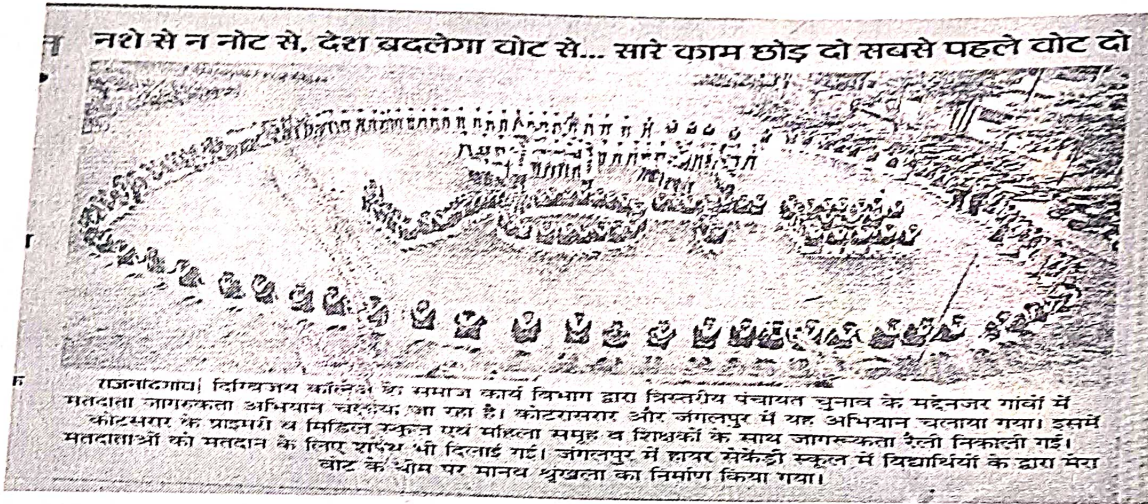 नशे से न नोट से, देश बदलेगा वोट से... सारे काम छोड़ दो सबसे पहले वोट दो
राजनांदगांव| दिग्विजय कॉलेज के समाज कार्य विभाग द्वारा त्रिस्तरीय पंचायत चुनाव के मद्देनजर गांवों में
मतदाता जागरुकता अभियान चलाया जा रहा है। कोटरासरार और जंगलपुर में यह अभियान चलाया गया। इसमें
कोटसरार के प्राइमरी व मिडिल स्कूल एवं महिला समूह व शिक्षकों के साथ जागरूकता रैली निकाली गई।
मतदाताओं को मतदान के लिए शपथ भी दिलाई गई। जंगलपुर में हायर सेकेंड्री स्कूल में विद्यार्थियों के द्वारा मेरा
वोट के थीम पर मानव श्रृंखला का निर्माण किया गया।